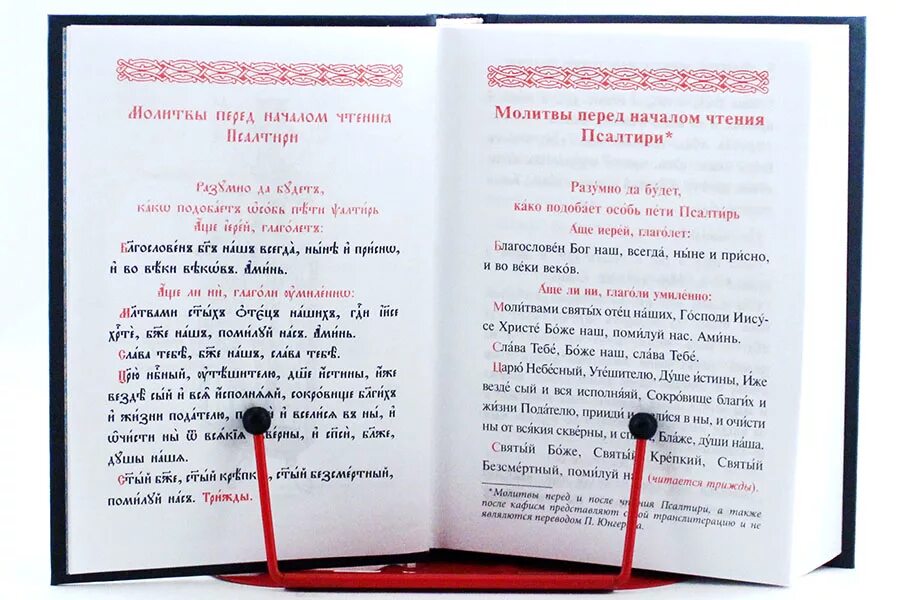 Молитвы пєрєд началом чтєния
Псалтири
Разꙋмно да бꙋдетъ,
какѡ подоба́етъ ѡсо́бь пѣ́ти ѱалти́рь
А́ще і҆ере́й, глаго́летъ:
Благослове́нъ бг҃ъ на́шъ всегда̀, ны́нѣ и҆ при́снѡ,
и҆ во вѣ́ки вѣкѡ́въ. А҆ми́нь.
А́ще ли нѝ, глаго́ли ᲂу҆миле́ннѡ:
Мл҃твами ст҃ы́хъ ѻ҆тє́цъ на́шихъ, гдⷭ҇и і҆и҃се
хрⷭ҇тѐ, бж҃е на́шъ, поми́лꙋй на́съ. А҆ми́нь.
Сла́ва тебѣ̀, бж҃е на́шъ, сла́ва тебѣ̀.
Цр҃ю̀ нбⷭ҇ный, ᲂу҆тѣ́шителю, дш҃е и҆́стины, и҆́же
вездѣ̀ сы́й и҆ всѧ̑ и҆сполнѧ́ѧй, сокро́вище бл҃ги́хъ
и҆ жи́зни пода́телю, и҆ всели́сѧ в ны̀, и҆
ѡ҆чи́сти ны̀ ѿ всѧ́кїѧ и҆ сп҃сѝ, бл҃же,
дꙋ́шы на́шѧ.
Ст҃ы́й бж҃е, ст҃ы́й крѣ́пкїй, ст҃ы́й безсме́ртный,
поми́лꙋй на́съ. Три́жды.
Молитвы перед началом чтения
Псалтири*
Разу́мно да бу́дет,
ка́ко подоба́ет осо́бь пе́ти Псалти́рь
А́ще иере́й, глаго́лет:
Благослове́н Бог наш, всегда́, ны́не и при́сно,
и во ве́ки веко́в.
А́ще ли ни, глаго́ли умиле́нно:
Моли́твами святы́х оте́ц на́ших, Го́споди Иису́-
се Христе́ Бо́же наш, поми́луй нас. Ами́нь.
Сла́ва Тебе́, Бо́же наш, сла́ва Тебе́.
Царю́ Небе́сный, Уте́шителю, Ду́ше и́стины, И́же
везде́ сый и вся исполня́яй, Сокро́вище благи́х и
жи́зни Пода́телю, в ны, и очи́сти
ны от вся́кия скве́рны, и Бла́же, ду́ши на́ша.
Святы́й Бо́же, Святы́й Кре́пкий, Святы́й
Безсме́ртный, поми́луй (читается трижды).
*Молитвы перед и после чтения Псалтири, а также
после кафисм представляют собой транслитерацию и не
являются переводом П. Юнгерова.